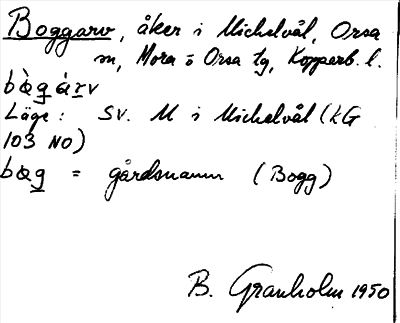 Boggarv, åker i Michelvål, Orsa
sn, Mora o Orsa tg, Kopparb. l.
bògàrv
Läge: SV. M i Michelvål (KG
103 NO)
bog = gårdsnamn (Bogg)
B. Granholm 1950